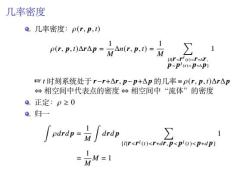 几率密度
几率密度：ρ(r, p, t)
ρ(r, p, t)ΔrΔp = 1/M Δn(r, p, t) = 1/M ∑ 1
{i|r<rⁱ(t)<r+Δr, p<pⁱ(t)<p+Δp}
t 时刻系统处于 r−r+Δr, p−p+Δp 的几率=ρ(r, p, t)ΔrΔp
⇔ 相空间中代表点的密度 ⇔ 相空间中“流体”的密度
正定：ρ ≥ 0
归一
∫ρdrdp = 1/M ∫drdp ∑ 1
{i|r<rⁱ(t)<r+dr, p<pⁱ(t)<p+dp}
= 1/M M = 1